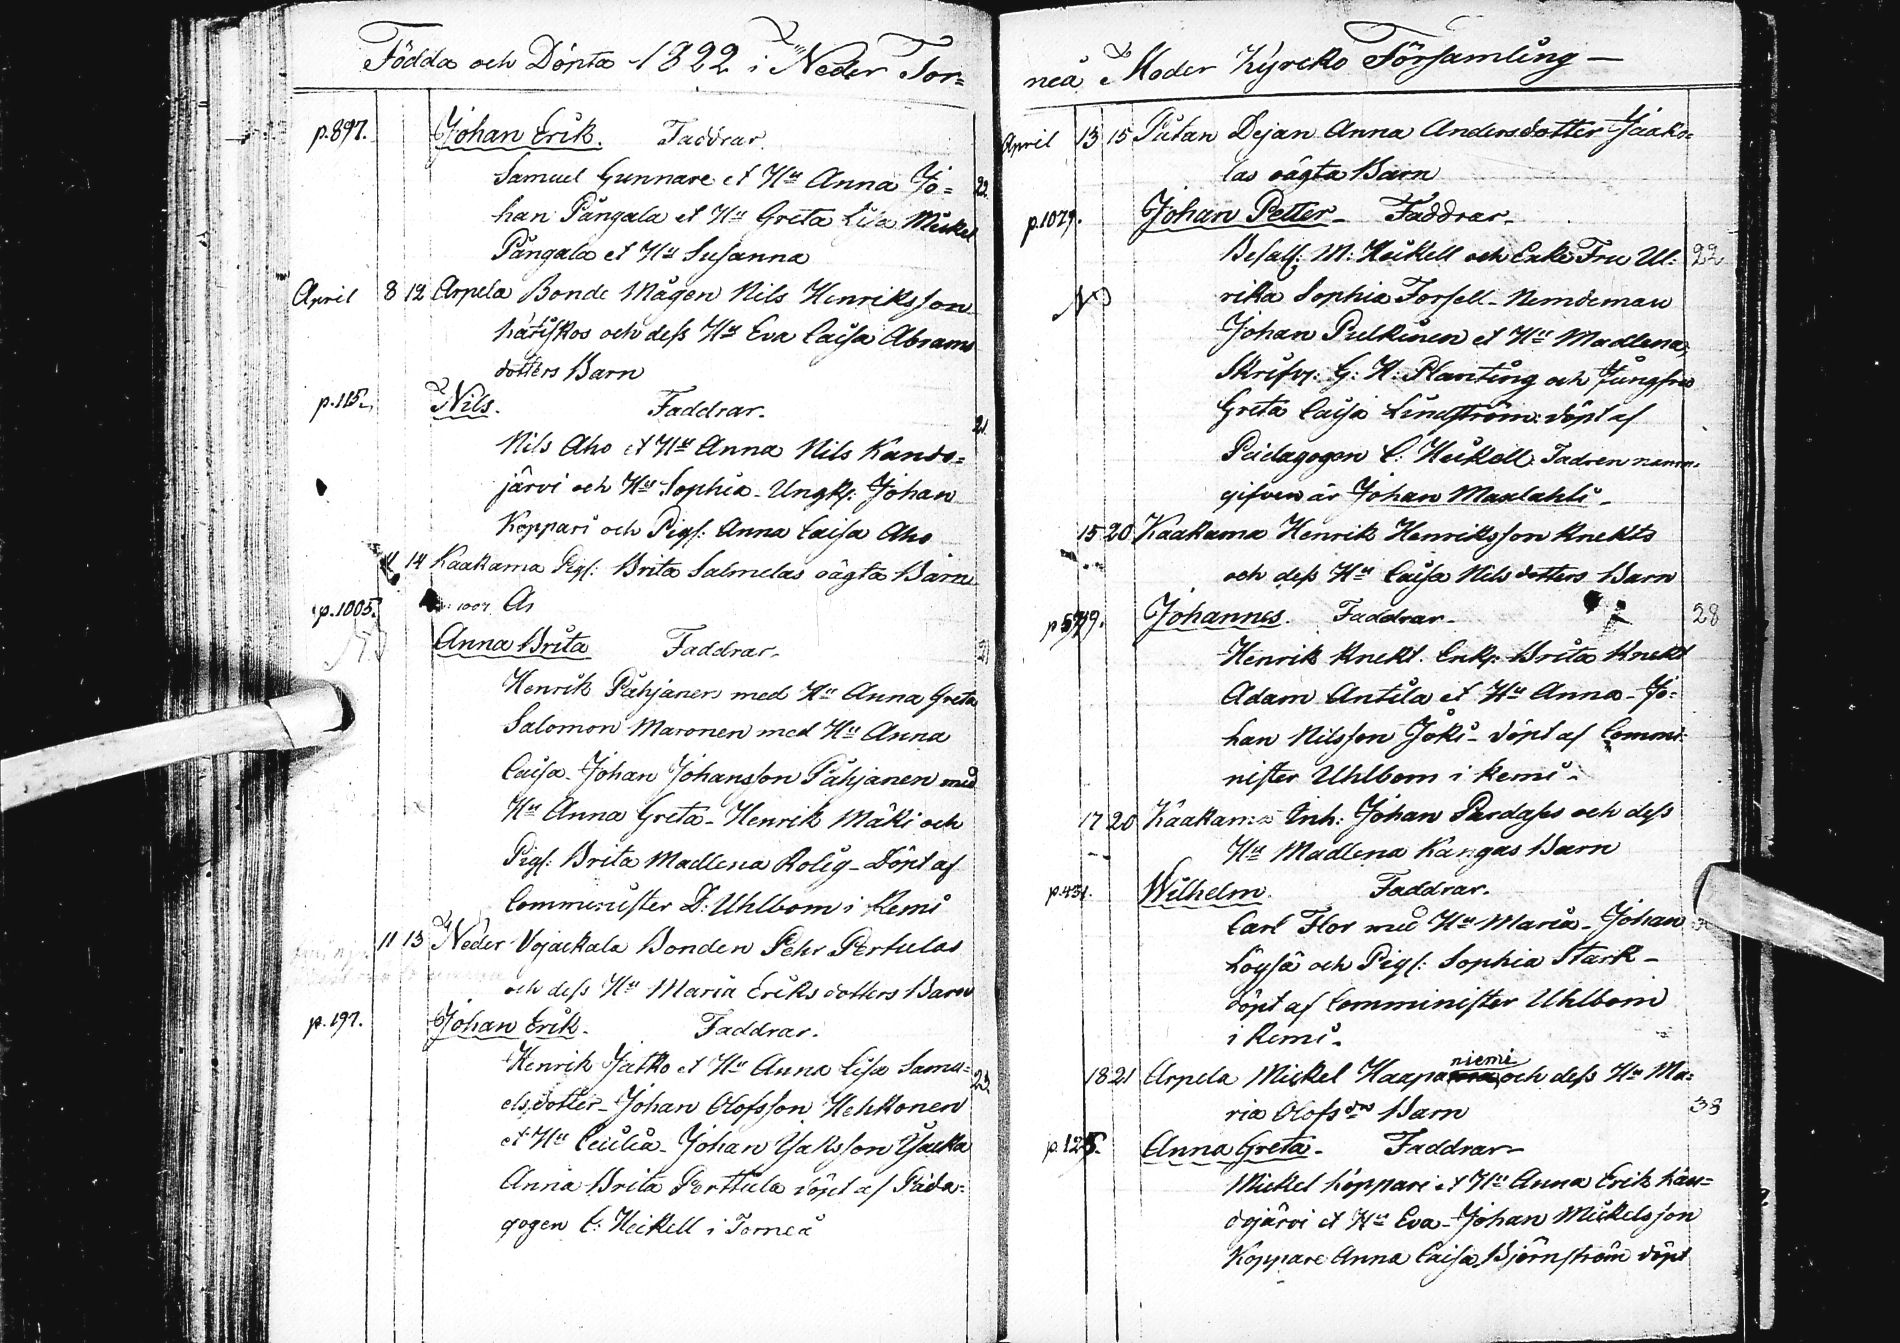 Födda och Döpta 1822 i Neder Tor=
p.897. Johan Erik. Faddrar.
Samuel Gunnare et Hu Anna Jo= 22.
han Pångala et Hu Greta Lisa Mickel
Pångala et Hu Susanna
April 8 12 Arpela Bonde Mågen Nils Henriksson
och dess Hu Eva Caisa Abrams
dotters Barn
p.115. Nils. Faddrar. 21.
Nils Aho et Hu Anna Nils Kando=
järvi och Hu Sophia - Ungk: Johan
Koppari och Pig: Anna Caisa Aho
11 14 Kaakama Pig: Brita Salmelas oägta Barn
p.1005.
Anna Brita Faddrar.
Henrik Påhjanen med Hu Anna Greta
Salomon Maronen med Hu Anna
Caisa - Johan Johansson Påhjanen med
Hu Anna Greta - Henrik Mäki och
Pig: Brita Madlena Rolig - Döpt af
Comminister D: Uhlbom i Kemi
11 13 Neder Vojackala Bonden Pehr Pertulas
och dess Hu Maria Eriks dotters Barn
p.197. Johan Erik. Faddrar.
Henrik Jatko et Hu Anna Lisa Samu= 23
els dotter - Johan Olofsson Hehkonen
et Hu Cecilia - Johan Isaksson Ysacka
Anna Brita Perttula döpt af Päda=
gogen C: Heikell i Torneå
neå Moder Kyrcko Församling —
April 13 15 Pudan Dejan Anna Andersdotter Jaako=
las oägta Barn
p.1079. Johan Petter - Faddrar -
Befalf: M: Heikell och Enke Fru Ul= 22
rika Sophia Forsell - Nemdeman
Johan Pulkinen et Hu Madlena,
Skrifvr: G: H: Planting och Jungfru
Greta Caisa Lindström: döpt af
Pädagogen C: Heikell. Fadren namn=
gifven är Johan Maxlahti -
15 20 Kaakama Henrik Henriksson Knekts
och dess Hu Caisa Nils dotters Barn
Johannes. Faddrar - 28
Henrik Knekt. Enk: Brita Knekt
Adam Antila et Hu Anna - Jo=
han Nilsson Joki - döpt af Commi=
nister Uhlbom i Kemi -
17 20 Kaakama Inh: Johan Pardases och dess
Hu Madlena Kangas Barn
p.431. Wilhelm. Faddrar.
Carl Flor med Hu Maria - Johan
Löyså och Pig: Sophia Stark -
döpt af Comminister Uhlbom
i Kemi -
niemi
18 21 Arpela Mickel Haapa och dess Hu Ma=
ria Olofs drs Barn 38
Anna Greta - Faddrar -
Mickel Koppare et Hu Anna Erik Kan=
dojärvi et Hu Eva - Johan Mickelsson
Koppare Anna Caisa Björnström döpt